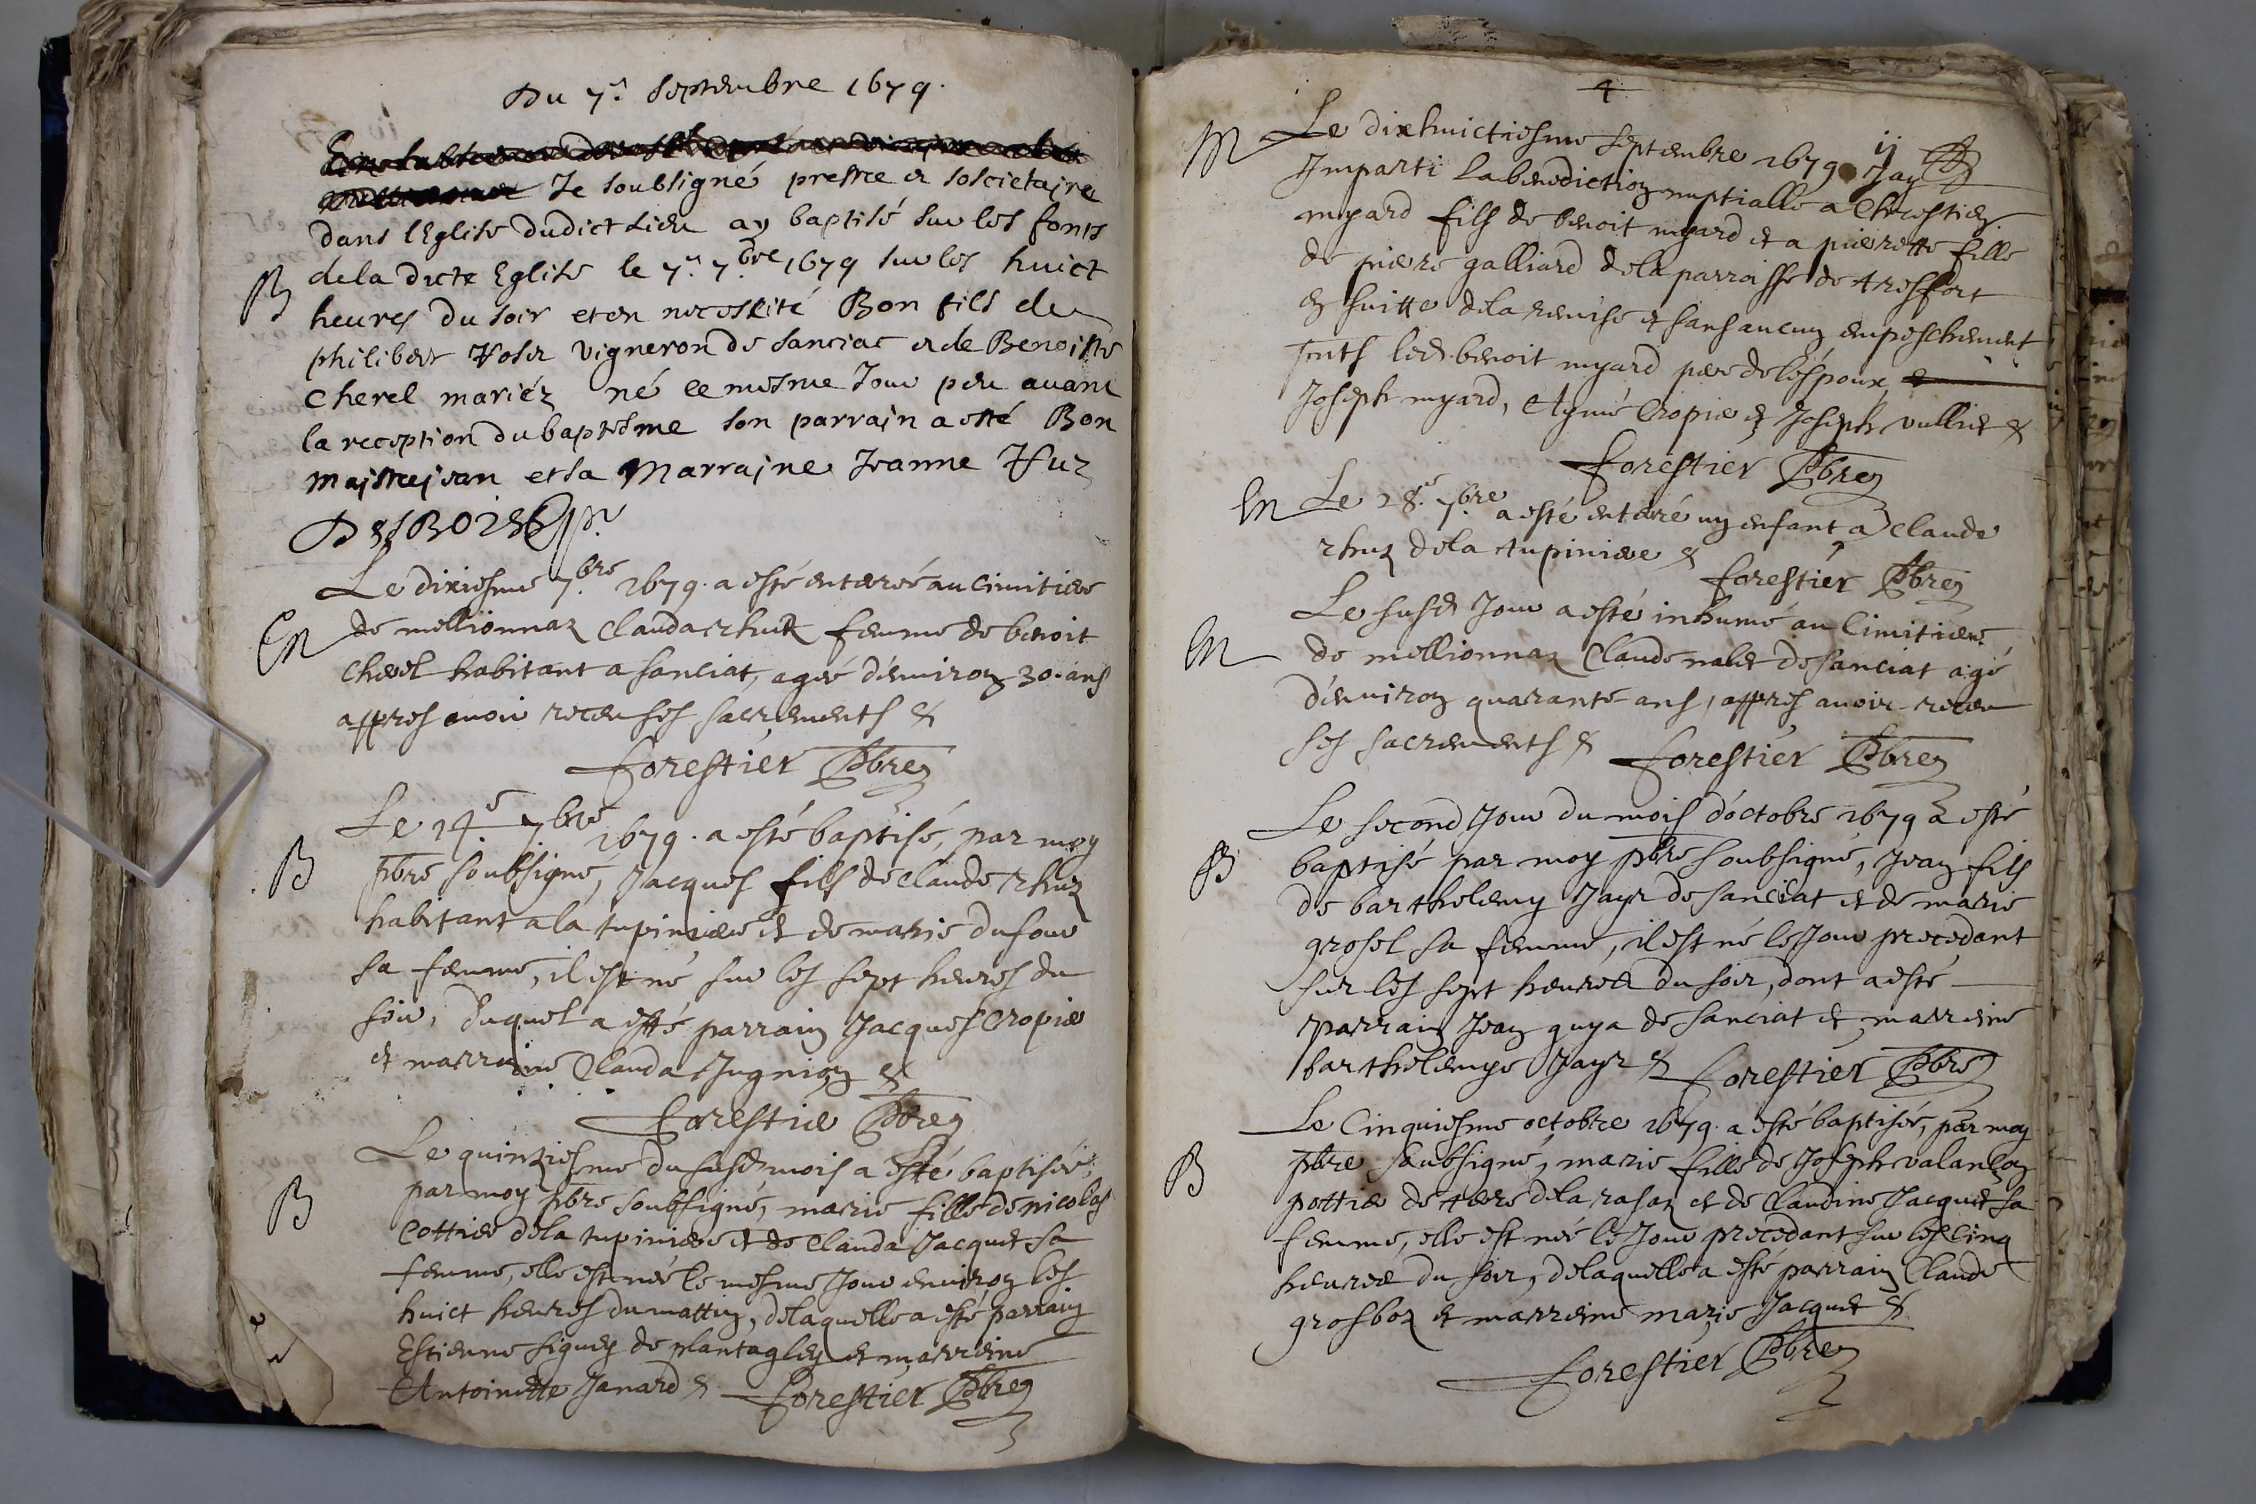 Du 7e. Septembre 1679.
Je soubsigné prestre et sosciétaire
dans l'Eglise dudict Lieu ay baptisé sur les fonts
B
de la dicte Eglise le 7e 7.bre 1679 sur les huict
heures du soir et en necessité Bon fils de
philibert vigneron de sanciac et de Benoiste
cherel mariéz né ce mesme Jour peu avant
la reception du baptesme son parrain a esté Bon
et sa Marraine Jeanne
Le dixiesme 7.bre 1679. a esté enterré au Cimitiere
En
de mellionnaz Clauda chuit femme de benoit
cherel habitant a sanciat, agée d'environ 30. ans
appres avoir receu ses sacrements &
Forestier Pbre
Le 14.e 7bre 1679. a esté baptisé, par moy
B
pbre soubsigné, Jacques fils de Claude
habitant a la tupiniere et de marie dufour
sa femme, il est né sur les sept heures du
soir, duquel a esté parrain Jacques Cropier
et marraine Clauda Jugnion &
Forestier Pbre
Le quinziesme du susd. mois a esté baptisée,
B
par moy pbre soubsigné, marie fille de nicolas
Cottier de la tupiniere et de Clauda Jacquet sa
femme, elle est née le mesme Jour environ les
huict heures du mattin, de laquelle a esté parrain
Estienne de et marreine
Antoinette Janard & Forestier Pbre
4
ij
M
Le dixhuictiesme Septembre 1679 Jay
Imparti la benediction nuptialle a Chrestien
myard fils de benoit myard et a pierrette fille
de pierre galliard de la parroisse de tresffort
en suitte de la remise et sans aucun empeschement
pnts led. benoit myard pere de l'espoux,
Joseph myard, Aymé Cropier et Joseph vulliet &
Forestier Pbre
En
Le 28.e 7.bre a esté enterré un enfant a Claude
de la tupiniere &
Forestier Pbre
Le susd. Jour a esté inhumé au Cimitiere
En
de mellionnaz Claude nalet de sanciat agé
d'environ quarante ans, appres avoir receu
ses sacrements & Forestier Pbre
Le second Jour du mois d'octobre 1679 a esté
B
baptisé par moy pbre soubsigné, Jean fils
de barthelemy Jayr de sanciat et de marie
grosel sa femme, il est né le Jour precedant
sur les sept heures du soir, dont a esté
parrain Jean guya de sanciat et marreine
barthelemye Jayr & Forestier Pbre
Le Cinquiesme octobre 1679. a esté baptisée, par moy
B
pbre soubsigné, marie fille de Joseph valançon
pottier de terre de la rasaz et de Claudine Jacquet sa
femme, elle est née le Jour precedant sur les cinq
heures du soir, de laquelle a esté parrain Claude
grosboz et marreine marie Jacquet &
Forestier Pbre